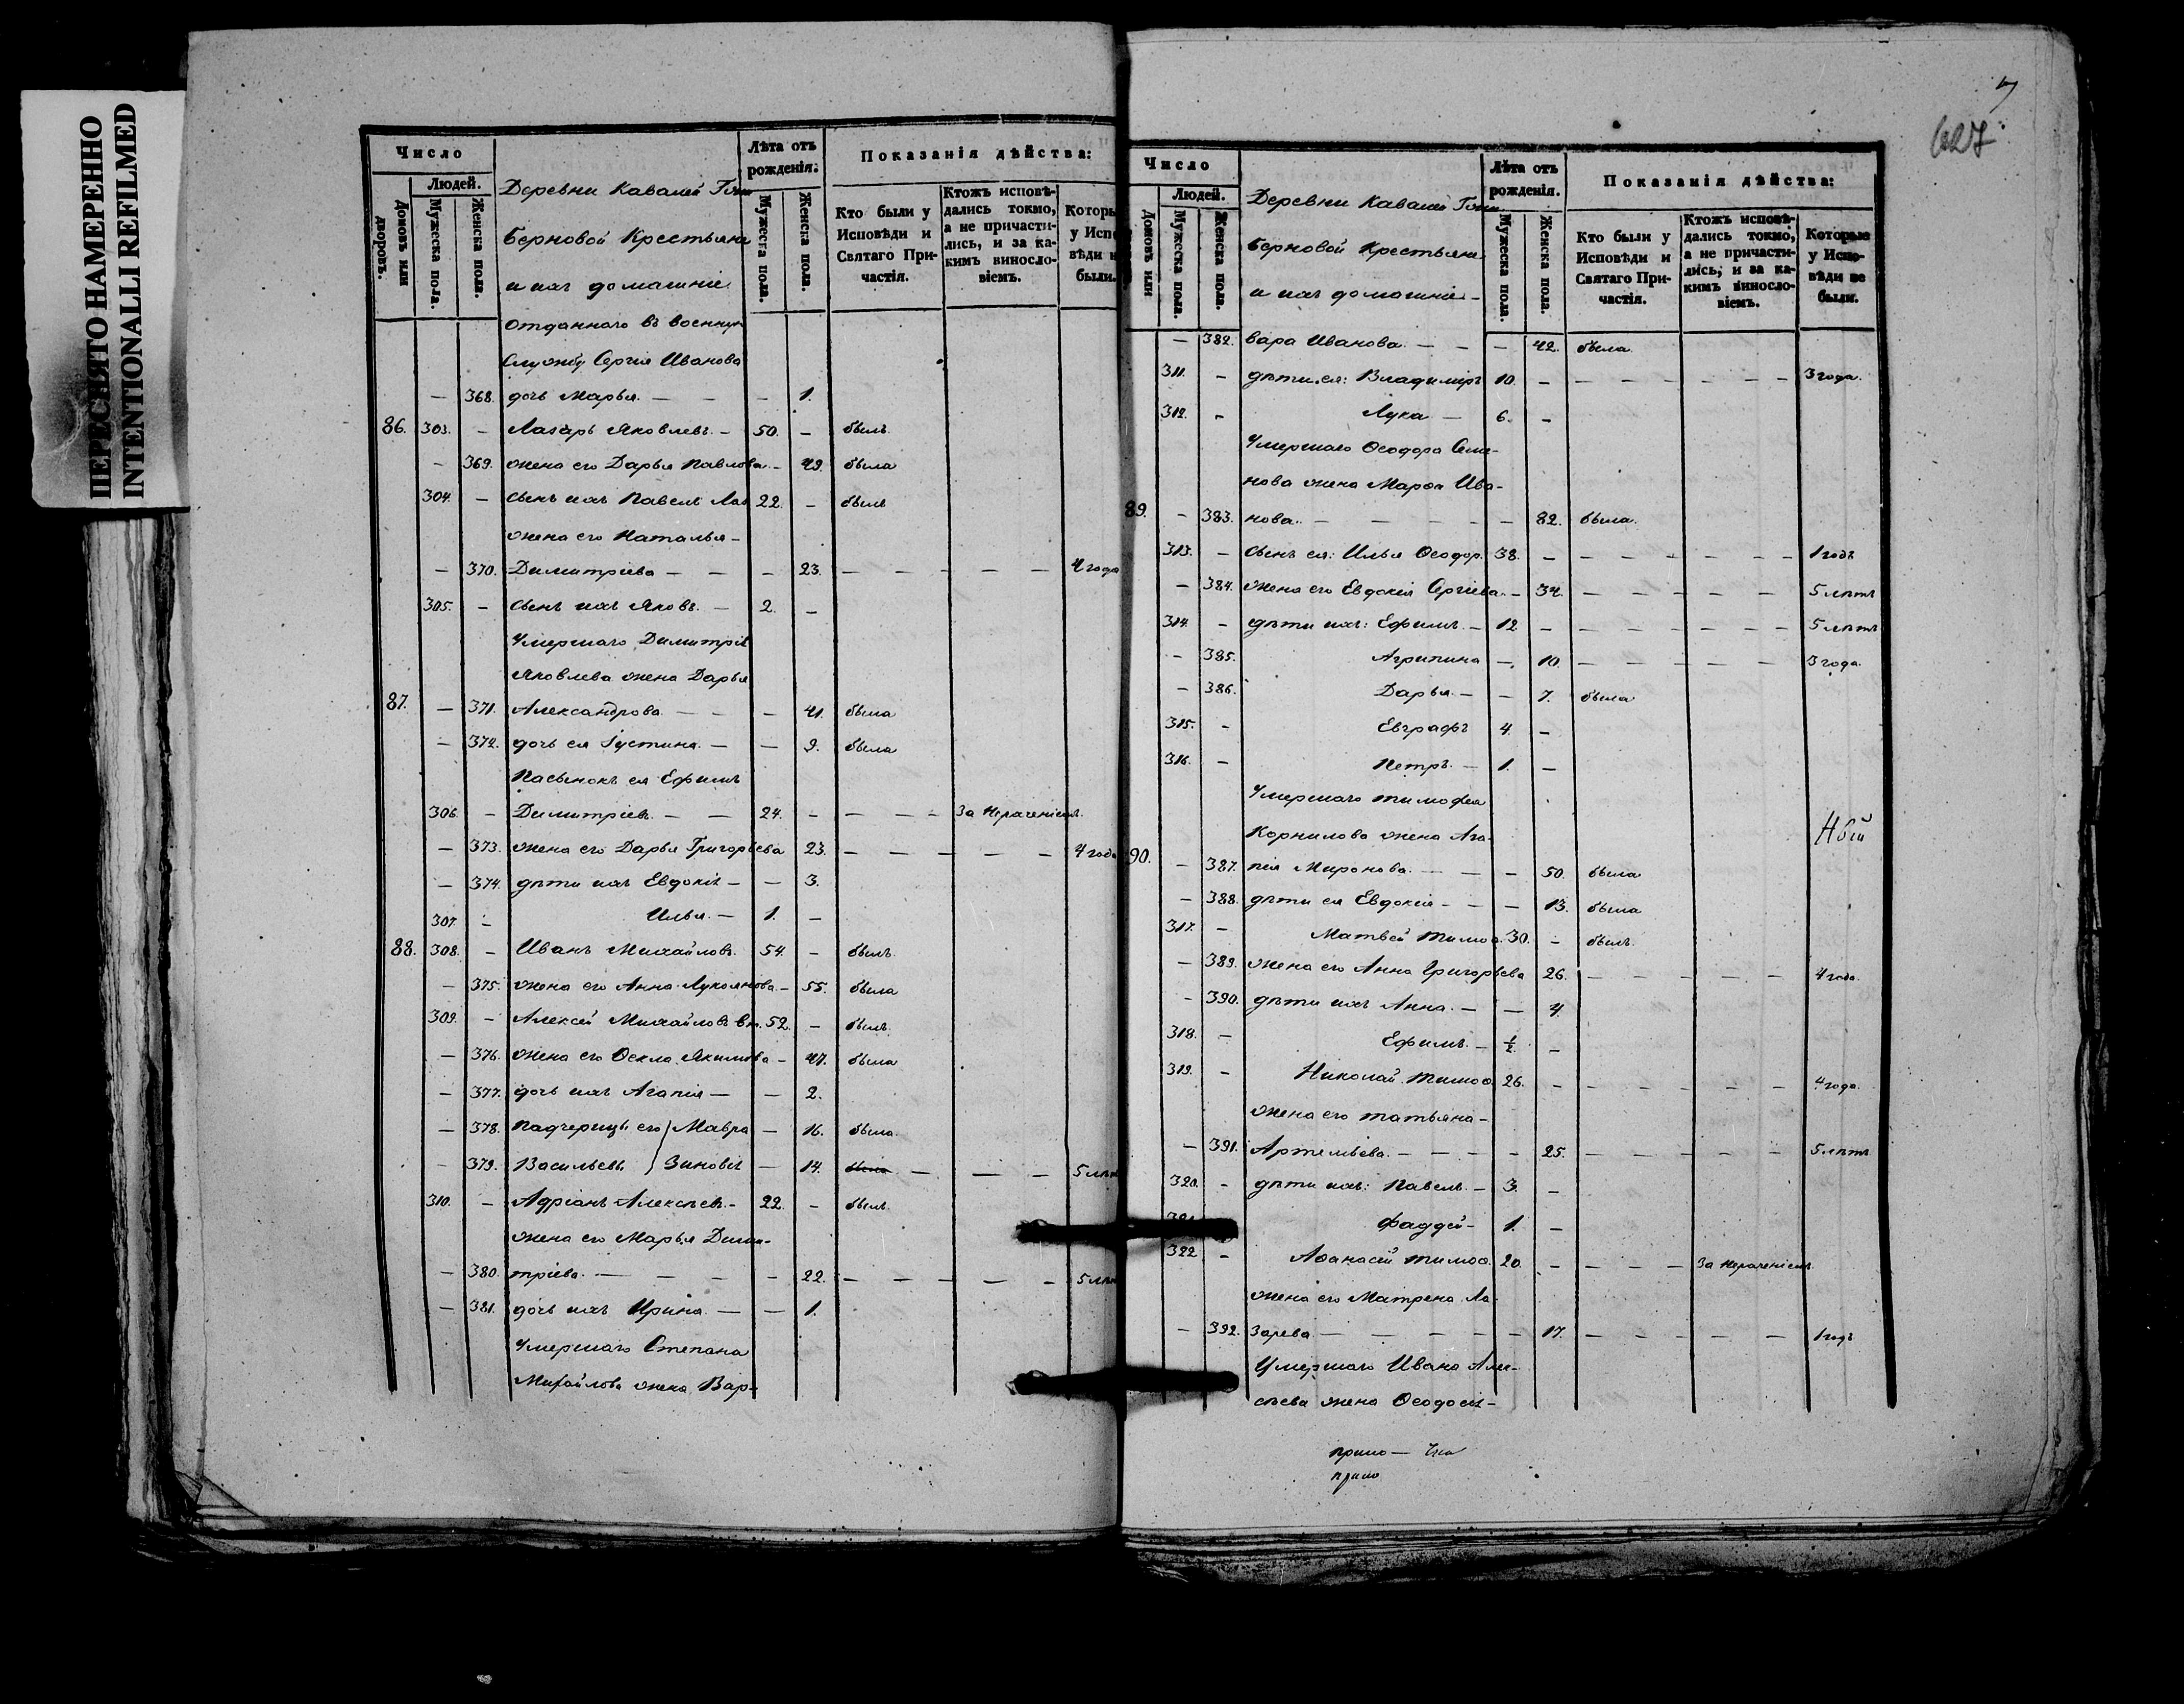 ПЕРЕСНЯТО НАМЕРЕННО
INTENTIONALLI REFILMED
Число
Людей.
Домовъ или дворовъ.
Мужеска пола.
Женска пола.
Деревни Кавалей Гжи
Берновой Крестьяне
и ихъ домашніе
Лѣта отъ рожденія.
Мужеска пола.
Женска пола.
Показанія дѣйства:
Кто были у Исповѣди и Святаго Причастія.
Ктожъ исповѣдались токмо, а не причастились, и за какимъ винословіемъ.
Которы у Испо вѣди н были.
отданнаго въ военную
службу Сергія Иванова
— 368. дочь Марья — — — 1.
86. 303. — Лазарь Яковлевъ — 50. — былъ
— 369. жена его Дарья Павлова — 49. была
304. — сынъ ихъ Павелъ Лаз 22. — былъ
жена его Наталья —
— 370. Димитріева — — — 23. — — — — — 4 года
305. — сынъ ихъ Яковъ — 2. —
Умершаго Димитрія
Яковлева жена Дарья
87. — 371. Александрова — — — 41. была
— 372. дочь ея Іустина — — 9. была
Пасынокъ ея Ефимъ
306. — Димитріевъ — — 24. — — — — За нераченіемъ
— 373. жена его Дарья Григорьева 23. — — — — — 4 года
— 374. дѣти ихъ Евдокія — — 3.
307. — Илья — 1. —
88. 308. — Иванъ Михайловъ 54. — былъ
— 375. жена его Анна Лукоянова — 55. была
309. — Алексѣй Михайловъ вн. 52. — былъ
— 376. жена его Ѳекла Якимова — 47. была
— 377. дочь ихъ Агапія — — 2.
— 378. падчерицы его Мавра — 16. была
— 379. Васильевы Зиновія — 14. была — — — 5 лѣтъ
310. — Адріанъ Алексѣевъ — 22. — былъ
жена его Марья Дими-
— 380. тріева — — — — 22. — — — — — 5 лѣт
— 381. дочь ихъ Ирина — — 1.
Умершаго Степана
Михайлова жена Вар-
627
Число
Людей.
Домовъ или
Мужеска пола.
Женска пола.
Деревни Кавалей Гжи
Берновой Крестьяне
и ихъ домашніе —
Лѣта отъ рожденія.
Мужеска пола.
Женска пола.
Показанія дѣйства:
Кто были у Исповѣди и Святаго Причастія.
Ктожъ исповѣдались токмо, а не причастились, и за какимъ винословіемъ.
Которые у Исповѣди не были.
— 382. вара Иванова — — — 42. была
311. — дѣти ея: Владимиръ 10. — — — — — — — 3 года.
312. — Лука — 6. —
Умершаго Ѳеодора Семе-
нова жена Марѳа Ива-
89. — 383. нова — — — — — 82. была.
313. — сынъ ея: Илья Ѳеодор. 38. — — — — — — — 1 годъ
— 384. жена его Евдокія Сергіева — 34. — — — — — 5 лѣтъ
314. — дѣти ихъ: Ефимъ — 12. — — — — — — — 5 лѣтъ
— 385. Агрипина — 10. — — — — — 3 года.
— 386. Дарья — — 7. была
315. — Евграфъ 4. —
316. — Петръ — 1. —
Умершаго Тимофея
Корнилова жена Ага-
90. — 387. пія Миронова — — — 50. была
— 388. дѣти ея Евдокія — — — 13. была
317. — Матвей Тимоѳ. 30. — былъ
— 389. жена его Анна Григорьева 26. — — — — — 4 года
— 390. дѣти ихъ Анна — — 4.
318. — Ефимъ — ½ —
319. — Николай Тимоѳ. 26. — — — — — — — 4 года.
жена его Татьяна —
— 391. Артемьева — — — — 25. — — — — — 5 лѣтъ
320. — дѣти ихъ: Павелъ — 3. —
321. Фаддей — 1. —
322 — Аѳанасій Тимоѳ. 20. — — — — За нераченіемъ
жена его Матрена Ла-
— 392. зарева — — — — — 17. — — — — — 1 годъ
Умершаго Ивана Алек-
сѣева жена Ѳеодосія —